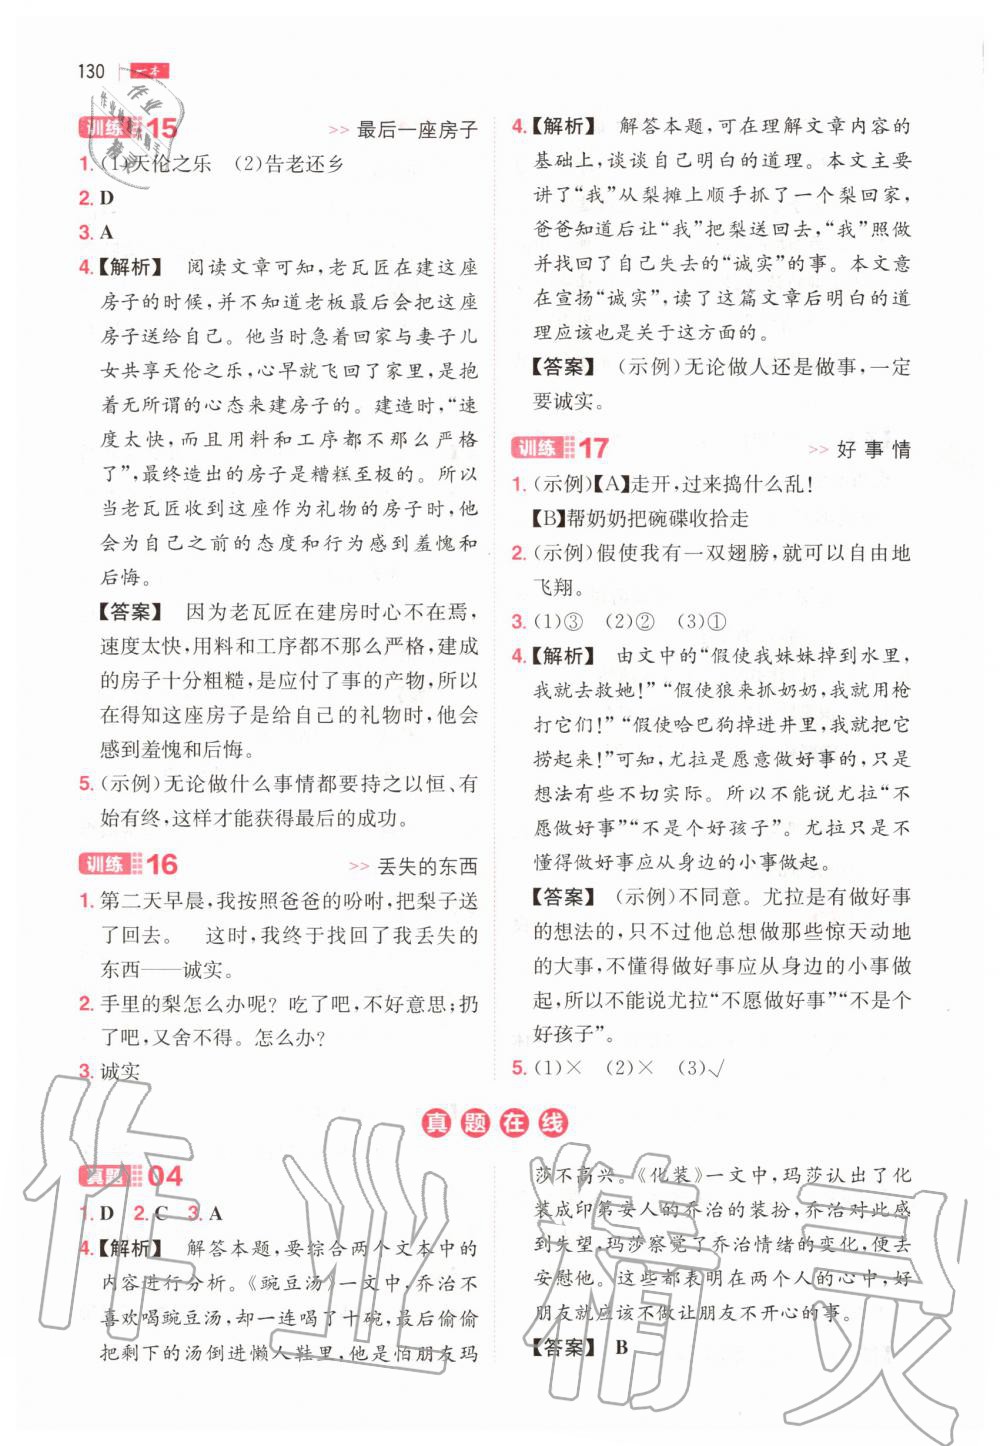 130
一本
训练15
>> 最后一座房子
1. (1)天伦之乐　(2)告老还乡
2. D
3. A
4.【解析】　阅读文章可知，老瓦匠在建这座
房子的时候，并不知道老板最后会把这座
房子送给自己。他当时急着回家与妻子儿
女共享天伦之乐，心早就飞回了家里，是抱
着无所谓的心态来建房子的。建造时，“速
度太快，而且用料和工序都不那么严格
了”，最终造出的房子是糟糕至极的。所以
当老瓦匠收到这座作为礼物的房子时，他
会为自己之前的态度和行为感到羞愧和
后悔。
【答案】　因为老瓦匠在建房时心不在焉，
速度太快，用料和工序都不那么严格，建成
的房子十分粗糙，是应付了事的产物，所以
在得知这座房子是给自己的礼物时，他会
感到羞愧和后悔。
5. (示例)无论做什么事情都要持之以恒、有
始有终，这样才能获得最后的成功。
训练16
>> 丢失的东西
1. 第二天早晨，我按照爸爸的吩咐，把梨子送
了回去。　这时，我终于找回了我丢失的
东西——诚实。
2. 手里的梨怎么办呢？吃了吧，不好意思；扔
了吧，又舍不得。怎么办？
3. 诚实
4.【解析】　解答本题，可在理解文章内容的
基础上，谈谈自己明白的道理。本文主要
讲了“我”从梨摊上顺手抓了一个梨回家，
爸爸知道后让“我”把梨送回去，“我”照做
并找回了自己失去的“诚实”的事。本文意
在宣扬“诚实”，读了这篇文章后明白的道
理应该也是关于这方面的。
【答案】　(示例)无论做人还是做事，一定
要诚实。
训练17
>> 好事情
1. (示例)【A】走开，过来捣什么乱！
【B】帮奶奶把碗碟收拾走
2. (示例)假使我有一双翅膀，就可以自由地
飞翔。
3. (1)③　(2)②　(3)①
4.【解析】　由文中的“假使我妹妹掉到水里，
我就去救她！”“假使狼来抓奶奶，我就用枪
打它们！”“假使哈巴狗掉进井里，我就把它
捞起来！”可知，尤拉是愿意做好事的，只是
想法有些不切实际。所以不能说尤拉“不
愿做好事”“不是个好孩子”。尤拉只是不
懂得做好事应从身边的小事做起。
【答案】　(示例)不同意。尤拉是有做好事
的想法的，只不过他总想做那些惊天动地
的大事，不懂得做好事应从身边的小事做
起，所以不能说尤拉“不愿做好事”“不是个
好孩子”。
5. (1)×　(2)×　(3)√
真题在线
真题04
1. D　2. C　3. A
4.【解析】　解答本题，要综合两个文本中的
内容进行分析。《豌豆汤》一文中，乔治不
喜欢喝豌豆汤，却一连喝了十碗，最后偷偷
把剩下的汤倒进懒人鞋里，他是怕朋友玛
莎不高兴。《化装》一文中，玛莎认出了化
装成印第安人的乔治的装扮，乔治对此感
到失望，玛莎察觉了乔治情绪的变化，就去
安慰他。这些都表明在两个人的心里，好
朋友就应该不做让朋友不开心的事。
【答案】　B
作业精灵